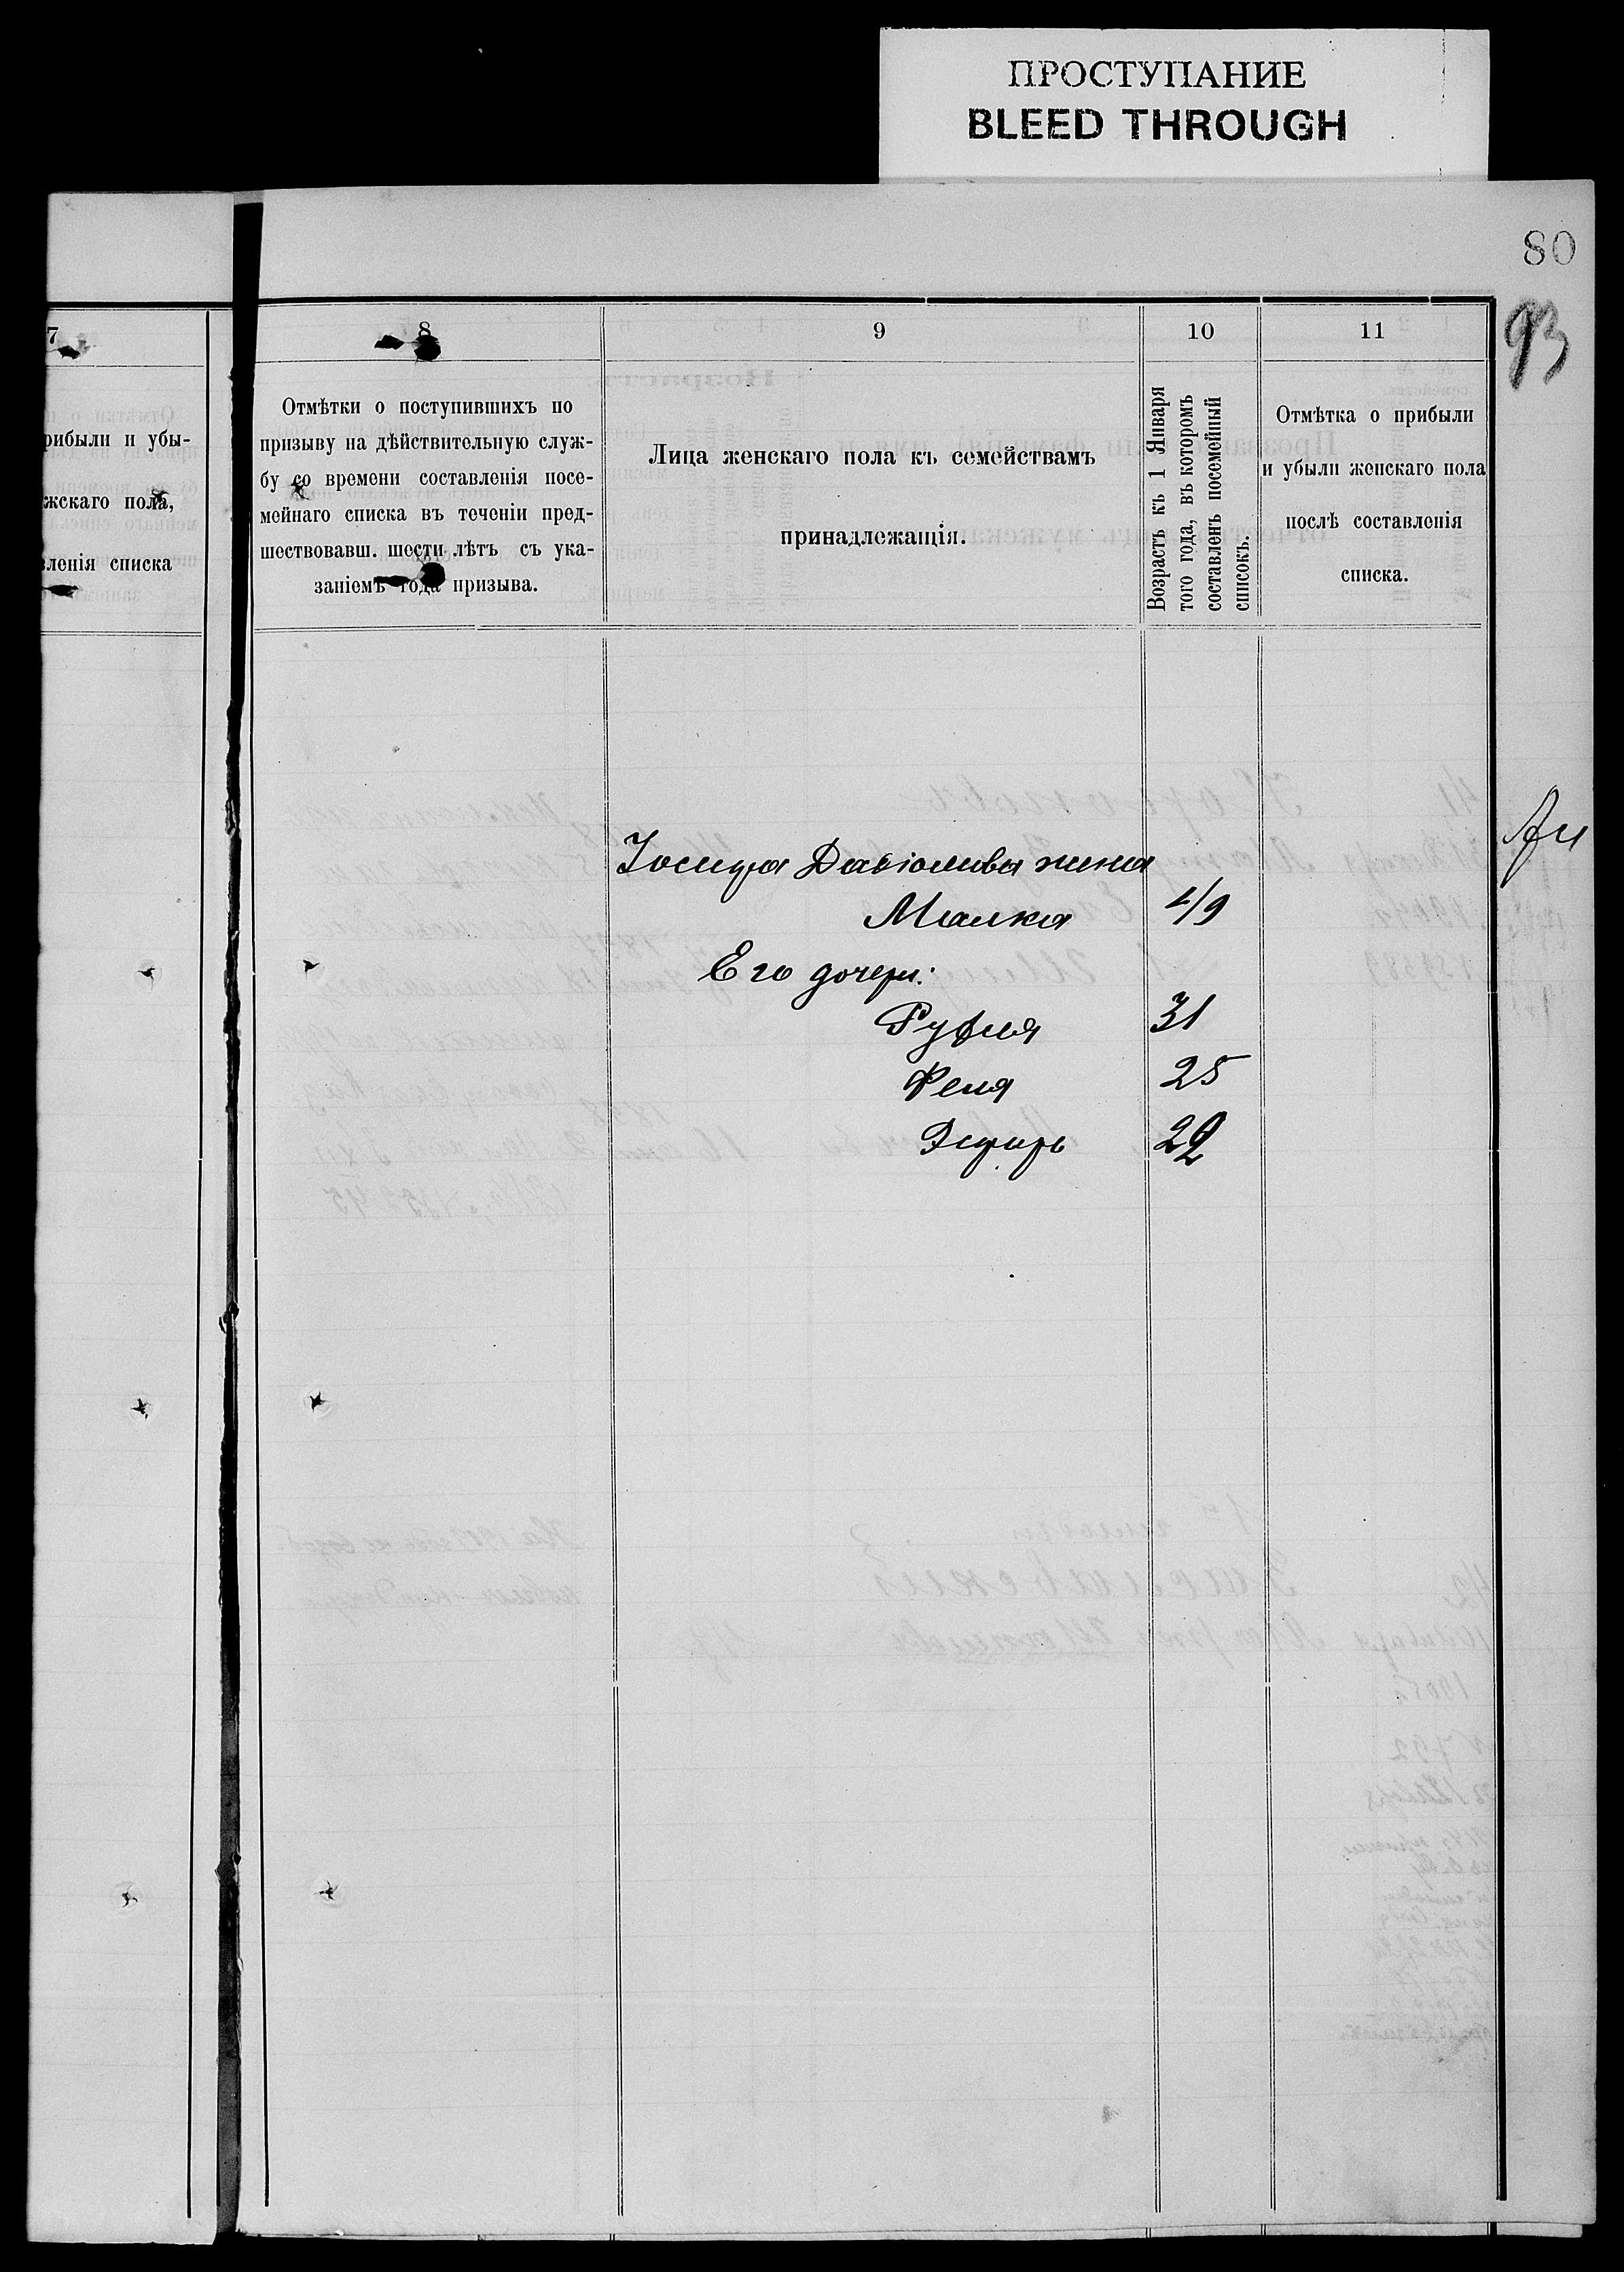 ПРОСТУПАНИЕ
BLEED THROUGH
80
93
7
рибыли и убы-
жскаго пола,
вленія списка
8
Отмѣтки о поступившихъ по
призыву на дѣйствительную служ-
бу со времени составленія посе-
мейнаго списка въ теченіи пред-
шествовавш. шести лѣтъ съ ука-
заніемъ года призыва.
9
Лица женскаго пола къ семействамъ
принадлежащія.
10
Возрастъ къ 1 Января
того года, въ которомъ
составленъ посемейный
списокъ.
11
Отмѣтка о прибыли
и убыли женскаго пола
послѣ составленія
списка.
Іосифа жена
Малка 49
Его дочери:
31
Феня 25
Эсфирь 22